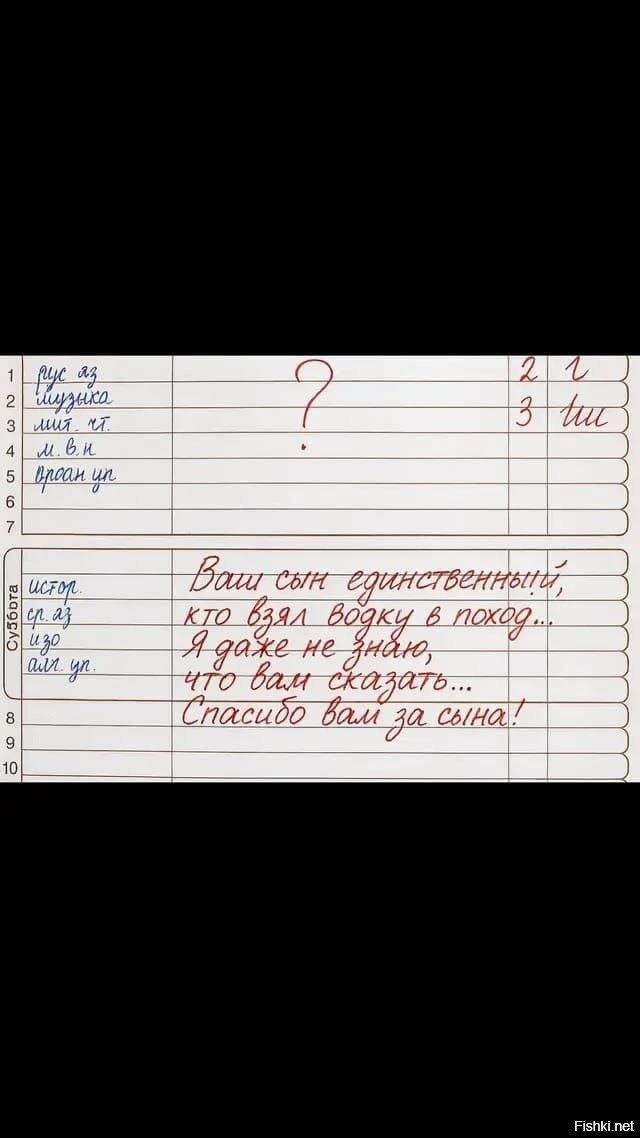 1 рус яз 2 г
2 музыка
3 мит. чт. ? 3 Ши
4 м.в.н
5 ороан ур
6
7
Суббыта
истор.
ср. аз
изо
алг. ур.
Ваш сын единственный,
кто взял водку в поход...
Я даже не знаю,
что вам сказать...
Спасибо вам за сына!
8
9
10
Fishki.net